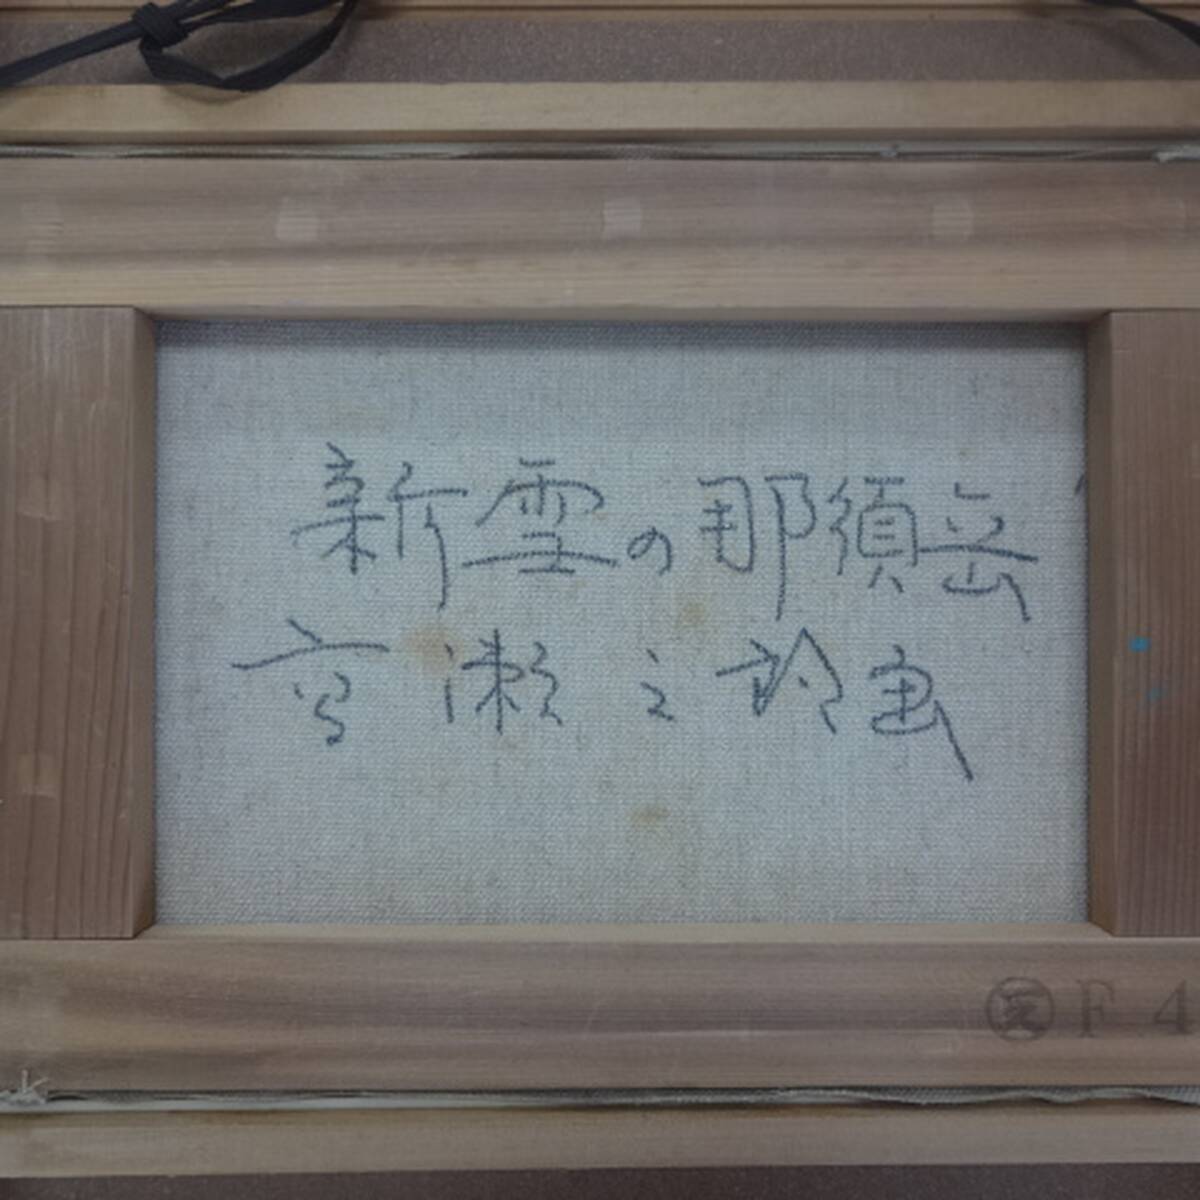 新雪の那須岳
高瀬之舲画
F 4